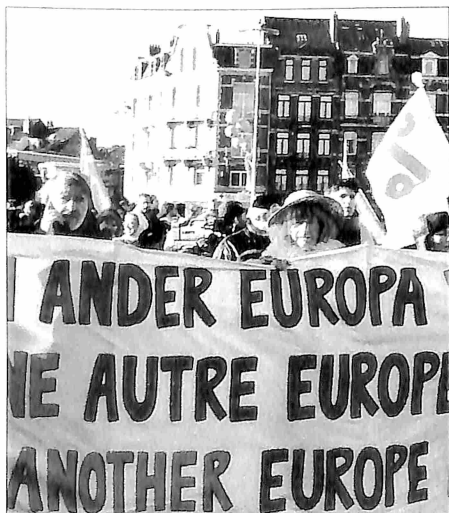 ANDER EUROPA
NE AUTRE EUROPE
ANOTHER EUROPE